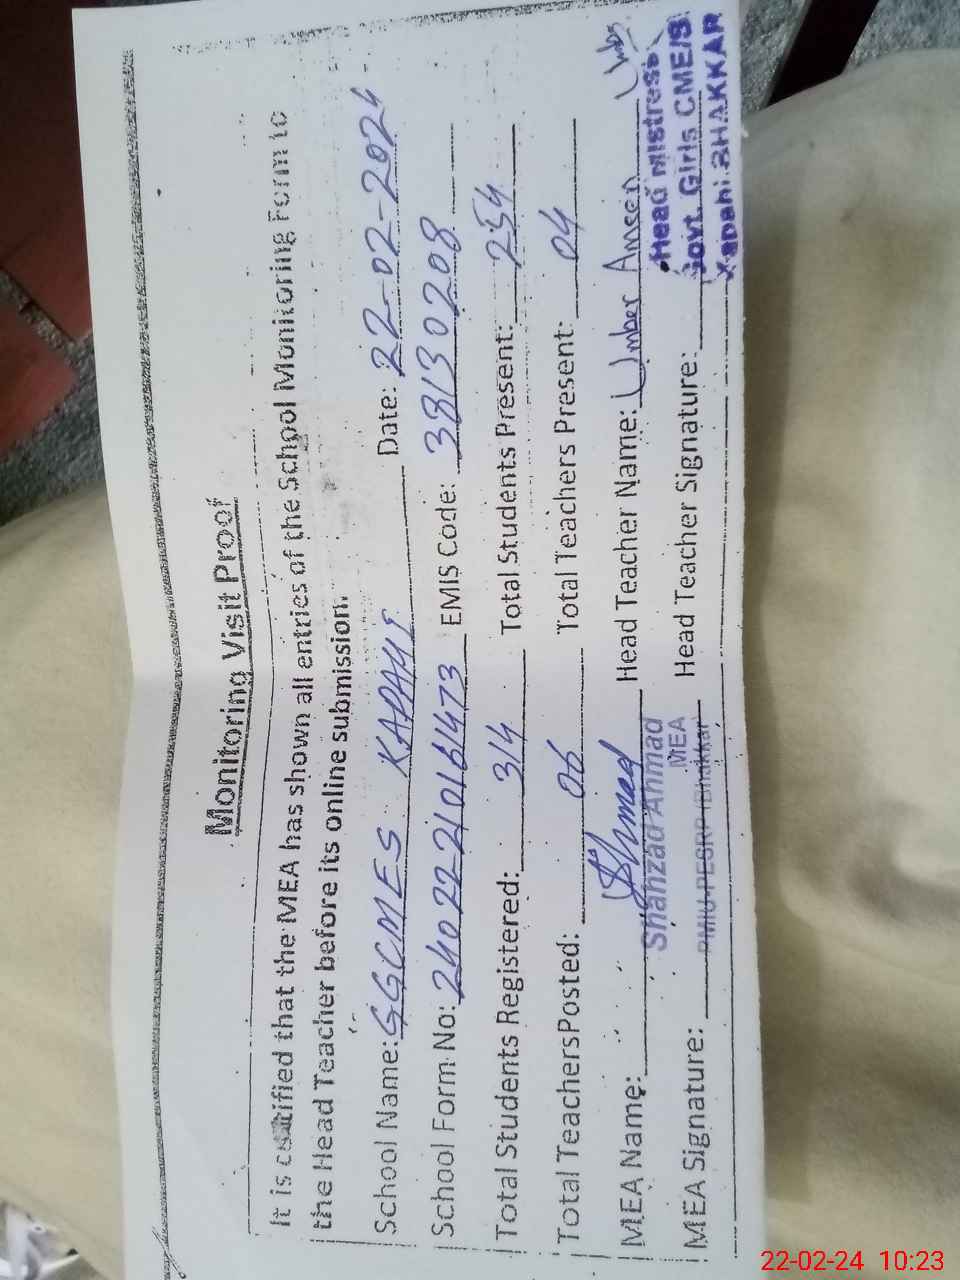 Monitoring Visit Proof
It is certified that the MEA has shown all entries of the School Monitoring Form to
the Head Teacher before its online submission.
School Name: GGCMES KAPAHI Date: 22-02-2024
School Form No: 24022210161473 EMIS Code: 38130208
Total Students Registered: 314 Total Students Present: 254
Total Teachers Posted: 06 Total Teachers Present: 04
MEA Name: Shahzad Ahmad Head Teacher Name: Umber Ameen
MEA
Head Mistress
MEA Signature: PMIU-PESRP (Bhakkar) Head Teacher Signature:
Govt. Girls CME/S
Kapahi BHAKKAR
22-02-24 10:23